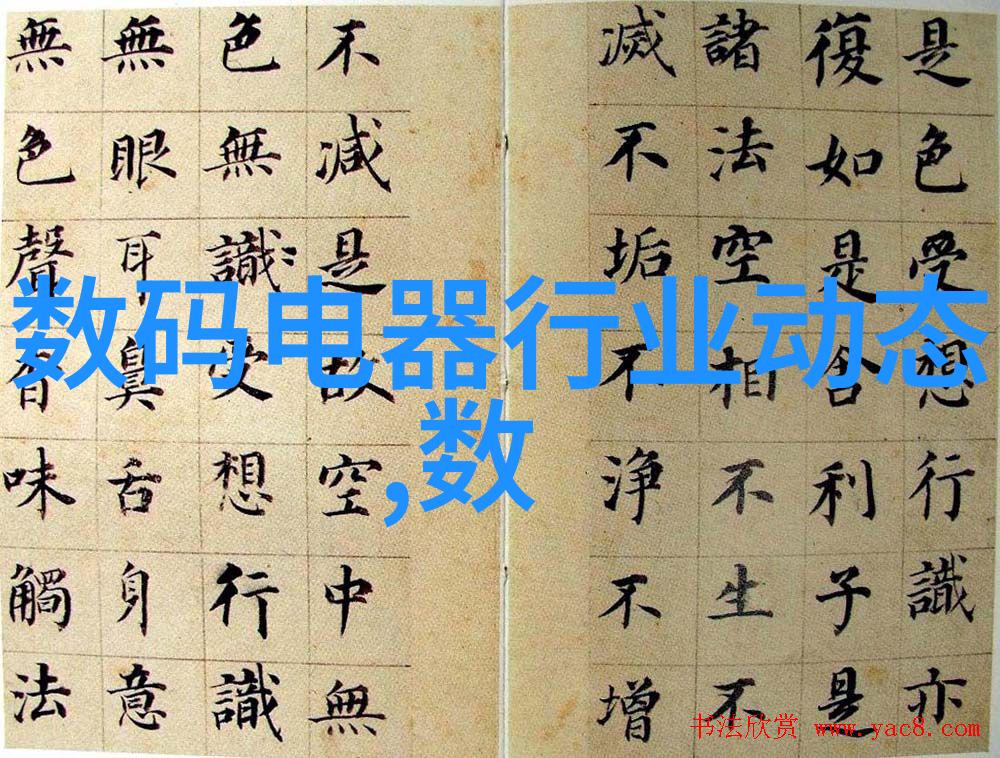 是色受想行識亦
復如是舍利子是
諸法空相不生不
滅不垢不淨不增
不減是故空中無
色無識受想行識
無眼耳鼻舌身意
無色聲香味觸法
数码电器行业动态
,数
书法欣赏 www.yac8.com